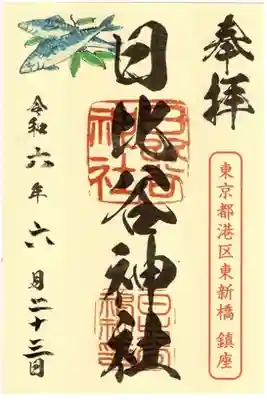 奉拝
東京都港区東新橋 鎮座
日比谷神社
日比谷神社
令和六年六月二十三日